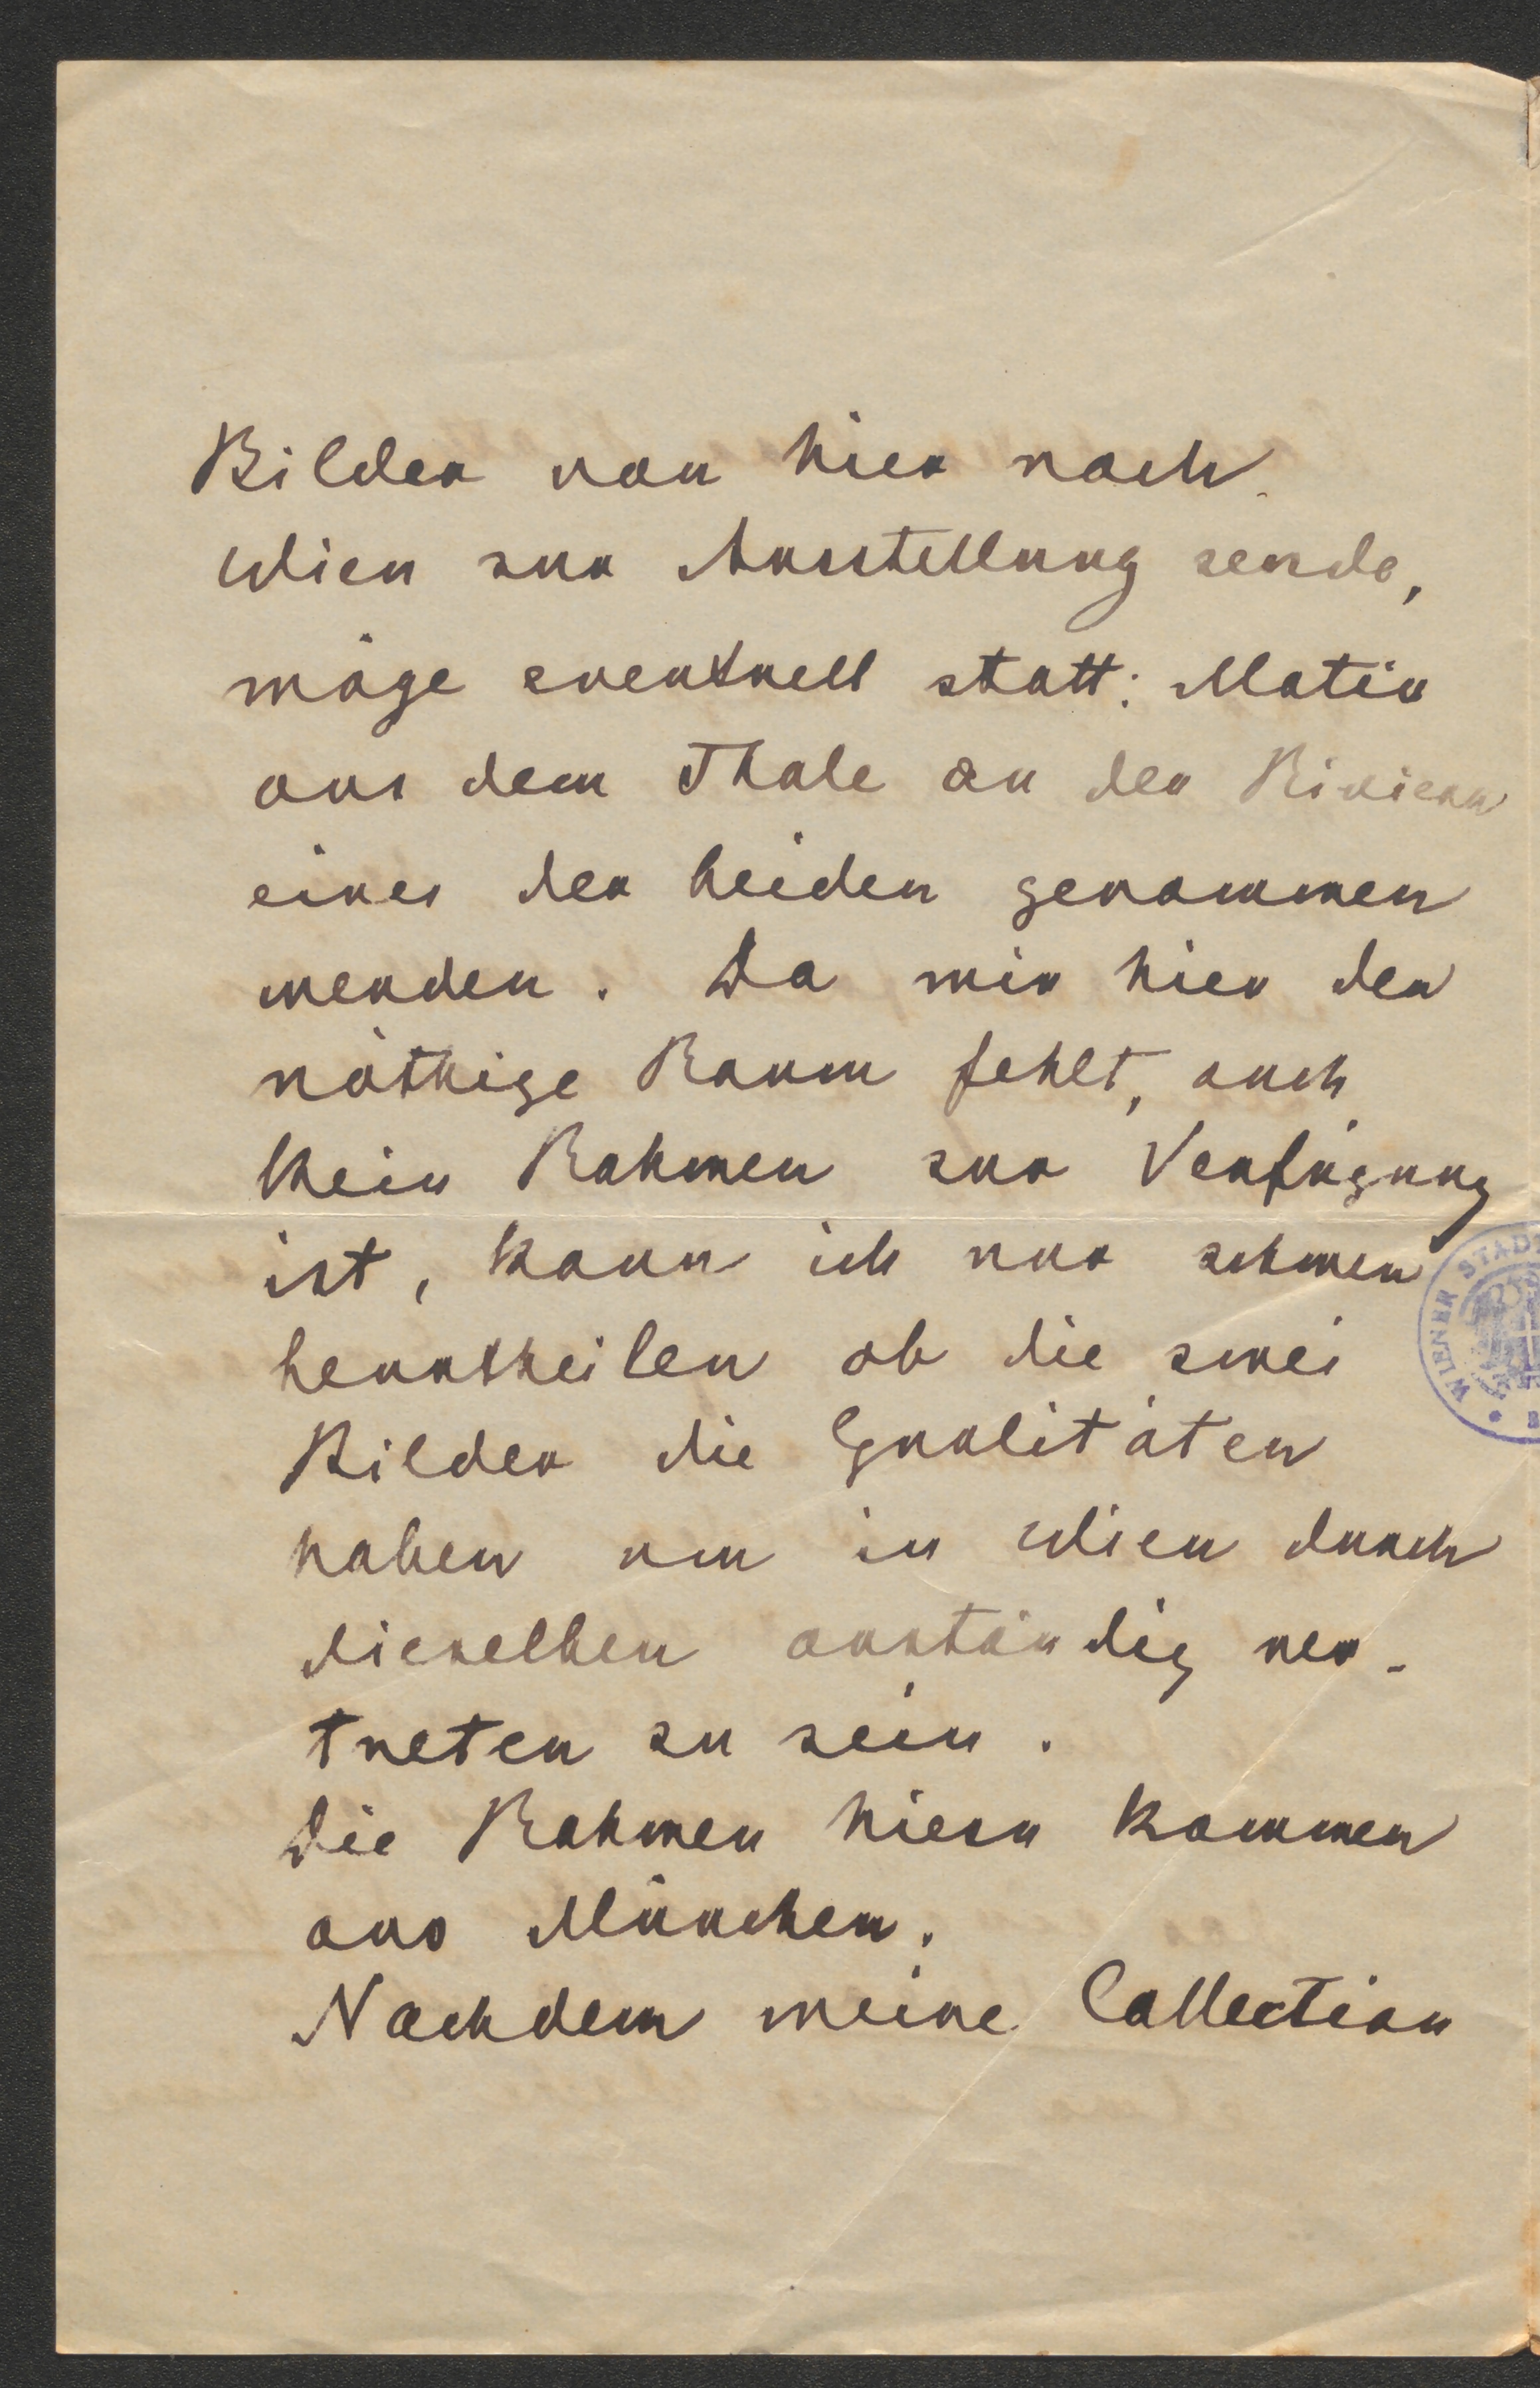 Bilder von hier nach
Wien zur Ausstellung sende,
möge eventuell statt: Motiv
aus dem Thale an der Riviera
eines der beiden genommen
werden. Da mir hier der
nöthige Raum fehlt, auch
kein Rahmen zur Verfügung
ist, kann ich nur schwer
beurtheilen ob die zwei
Bilder die Qualitäten
haben um in Wien durch
dieselben anständig ver-
treten zu sein.
Die Rahmen hiezu kommen
aus München.
Nachdem meine Collection
WIENER STAD